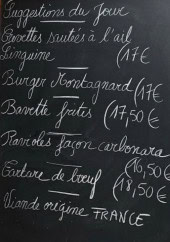 Suggestions du Jour
Crevettes sautées à l'ail
Linguine (17€
Burger Montagnard (17€
Bavette frites (17,50€
Ravioles façon carbonara
(16,50€
Tartare de bœuf (18,50€
Viande origine FRANCE